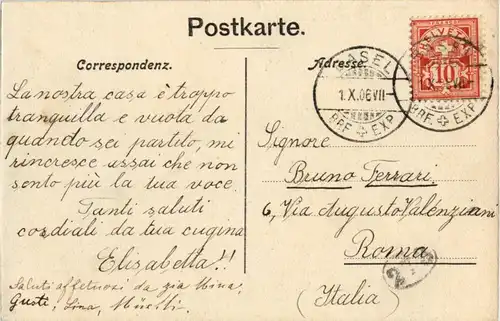 Postkarte.
Correspondenz.
La nostra casa è trappo
tranquilla e vuota da
quando sei partito, mi
rincresce assai che non
sento più la tua voce.
Tanti saluti
cordiali da tua cugina
Elisabetta!!
Saluti affettuosi da zia Mina
Gusti, Lina,
Adresse.
HELVETIA
10
BASEL
1.X.06 VII-
BRF. EXP.
BRF. EXP.
Signore
Bruno Ferrari.
6, Via Augusto Valénziani
Roma
(Italia)